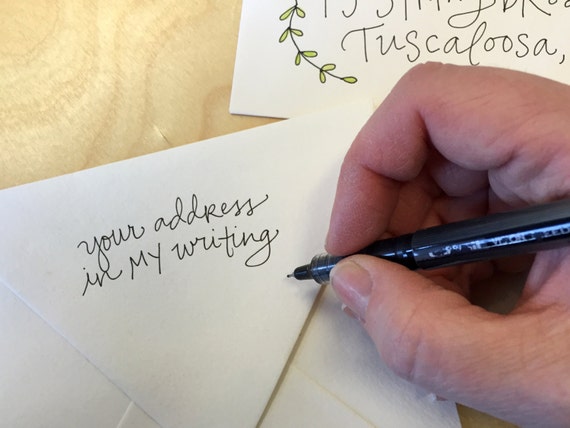 Tuscaloosa,
your address
in MY writing